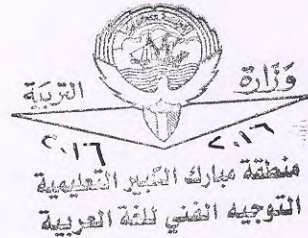 وزارة التربية
٢٠١٦ ٢٠١٦
منطقة مبارك الكبير التعليمية
التوجيه الفني للغة العربية